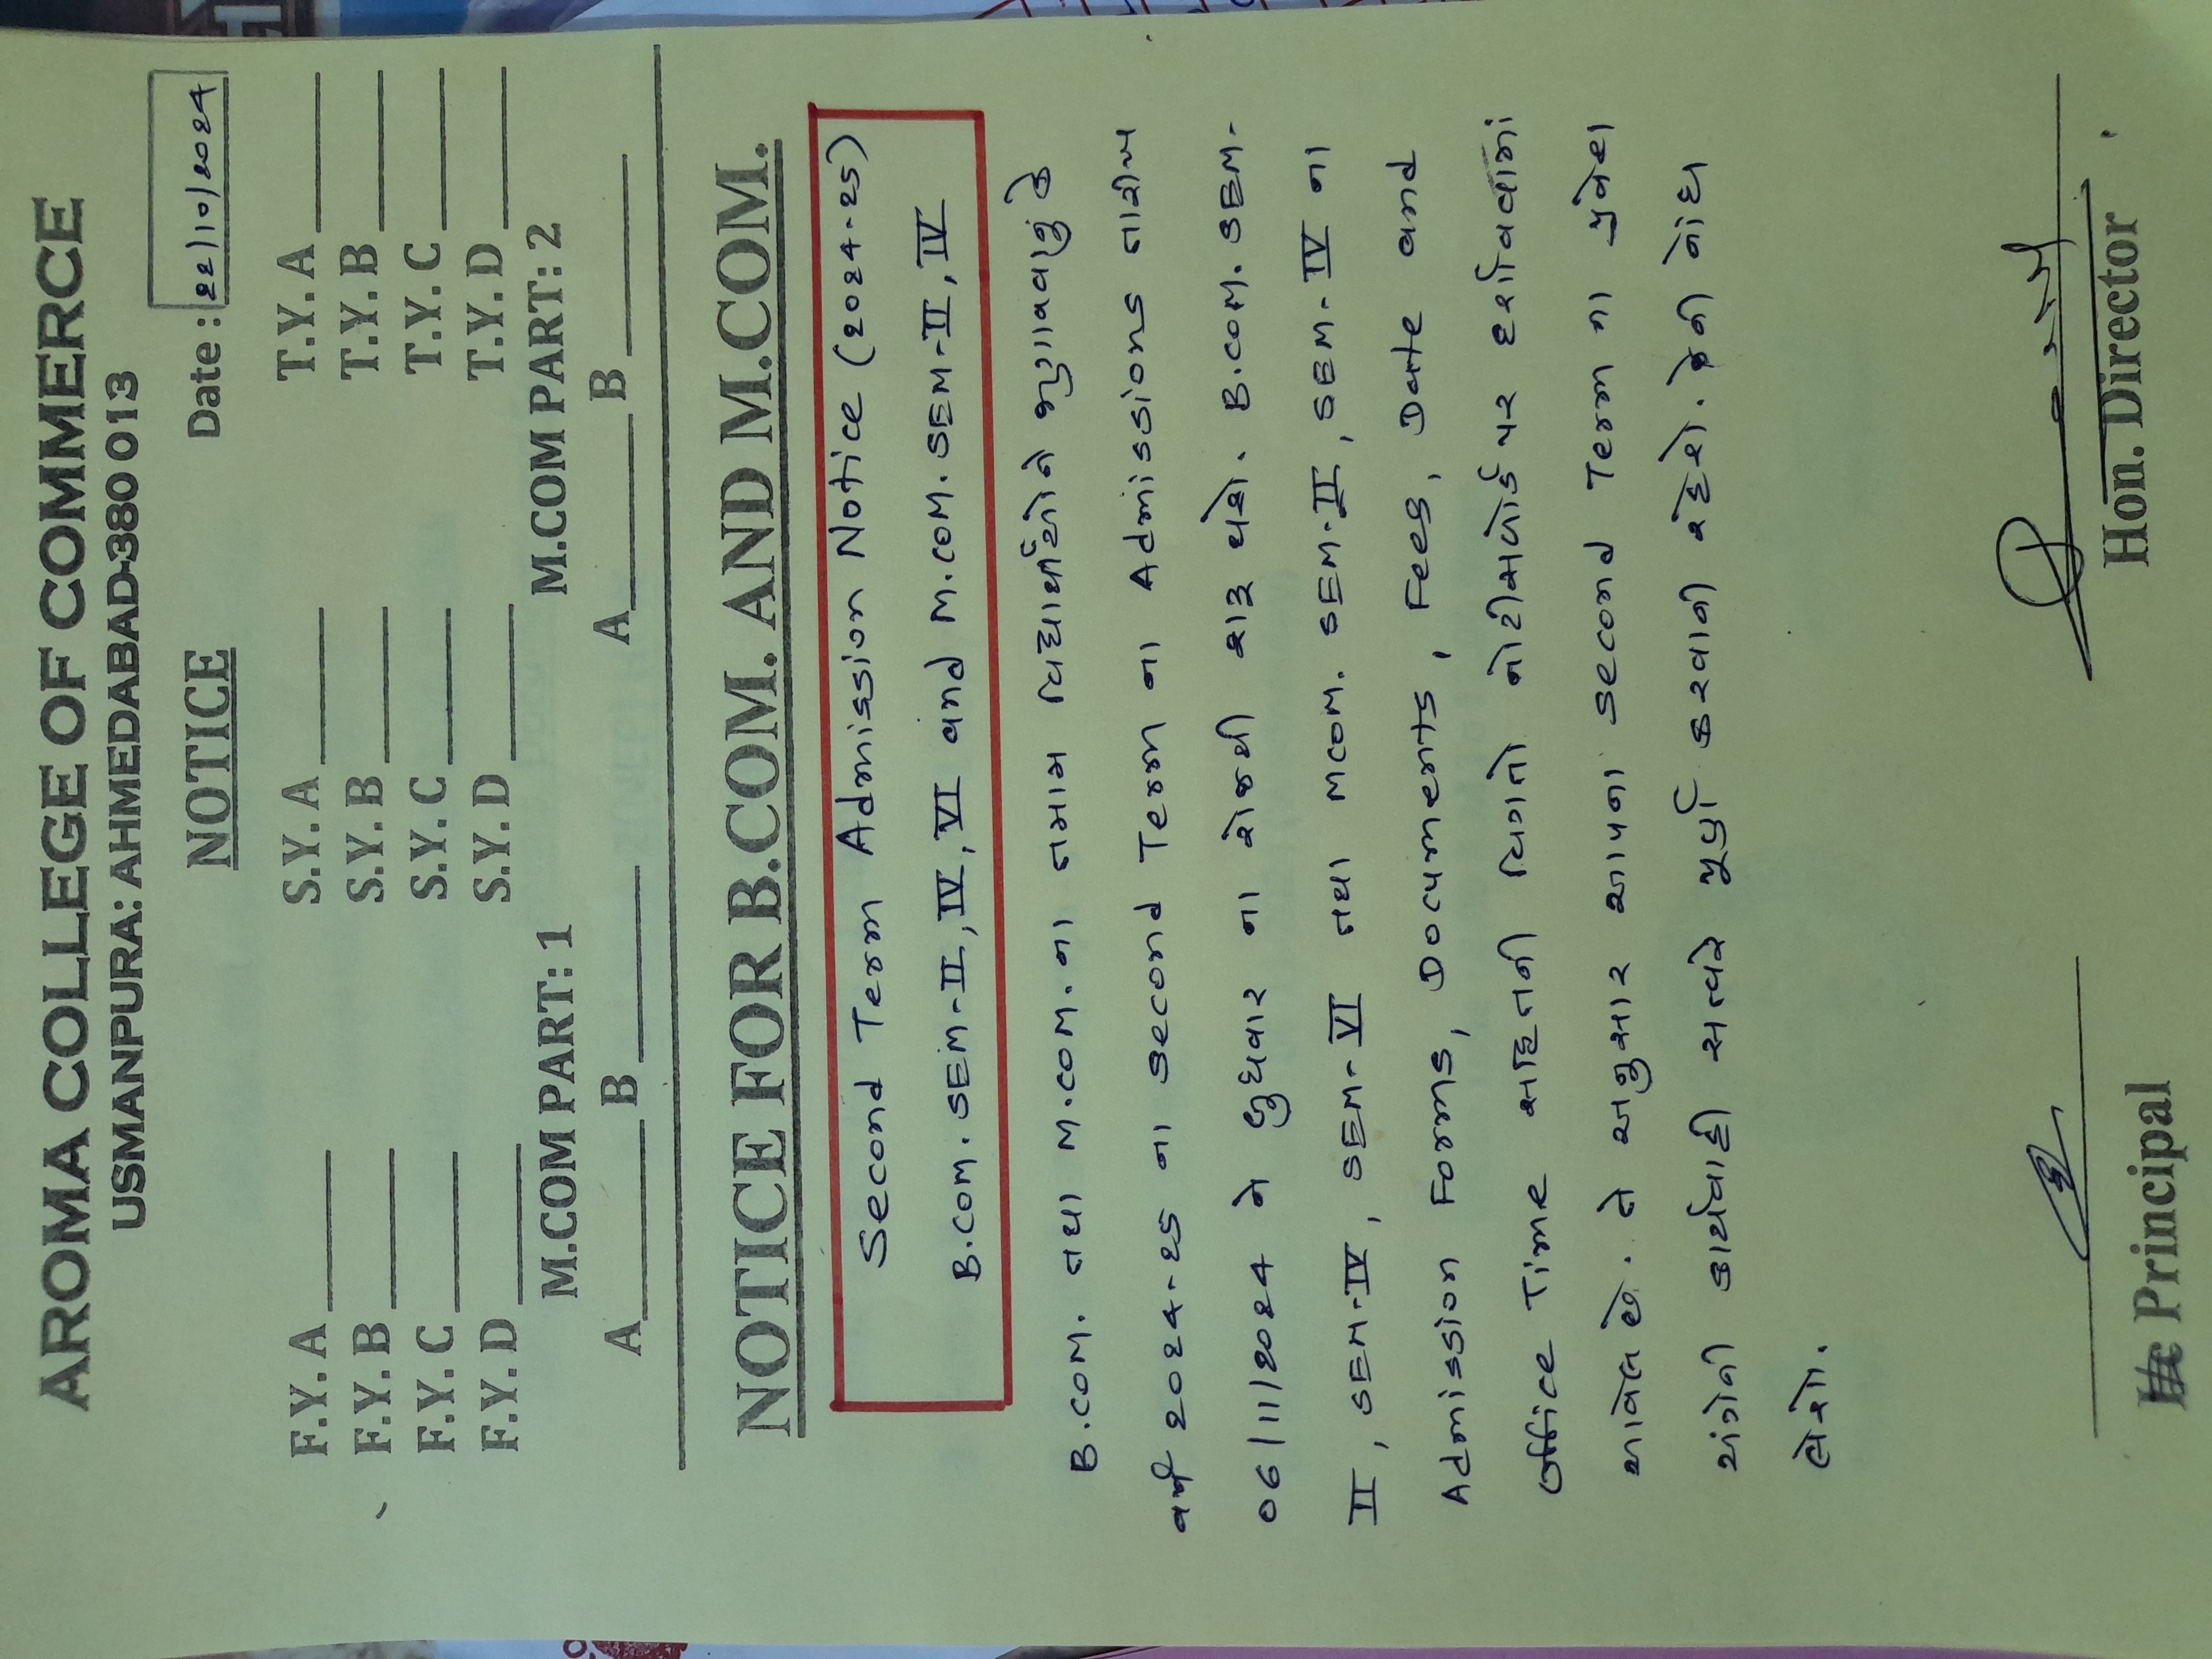 AROMA COLLEGE OF COMMERCE
USMANPURA: AHMEDABAD-380 013
NOTICE Date : 22/10/2024
F.Y. A S.Y. A T.Y. A
F.Y. B S.Y. B T.Y. B
F.Y. C S.Y. C T.Y. C
F.Y. D S.Y. D T.Y. D
M.COM PART: 1 M.COM PART: 2
A B A B
NOTICE FOR B.COM. AND M.COM.
Second Term Admission Notice (2024-25)
B.COM. SEM-II, IV, VI and M.COM. SEM-II, IV
B.COM. તથા M.COM. ના તમામ વિદ્યાર્થીઓને જણાવવાનું કે
વર્ષ 2024-25 ના Second Term ના Admissions તારીખ
06/11/2024 ને બુધવાર ના રોજથી શરૂ થશે. B.COM. SEM-
II, SEM-IV, SEM-VI તથા MCOM. SEM-II, SEM-IV ના
Admission Forms, Documents, Fees, Date and
Office Time સહિતની વિગતો નોટીસબોર્ડ પર દર્શાવવામાં
આવેલ છે. તે અનુસાર આપના Second Term ના પ્રવેશ
અંગેની કાર્યવાહી સત્વરે પૂર્ણ કરવાની રહેશે. જેની નોંધ
લેશો.
Principal Hon. Director